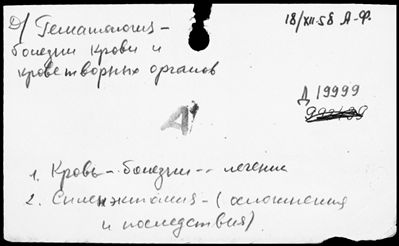 Д/ Гематология -
болезни крови и
кроветворных органов
18/XII-58 А-Ф.
Д 19999
А
1. Кровь - болезни - лечение
2. Спленэктомия - (осложнения
и последствия)